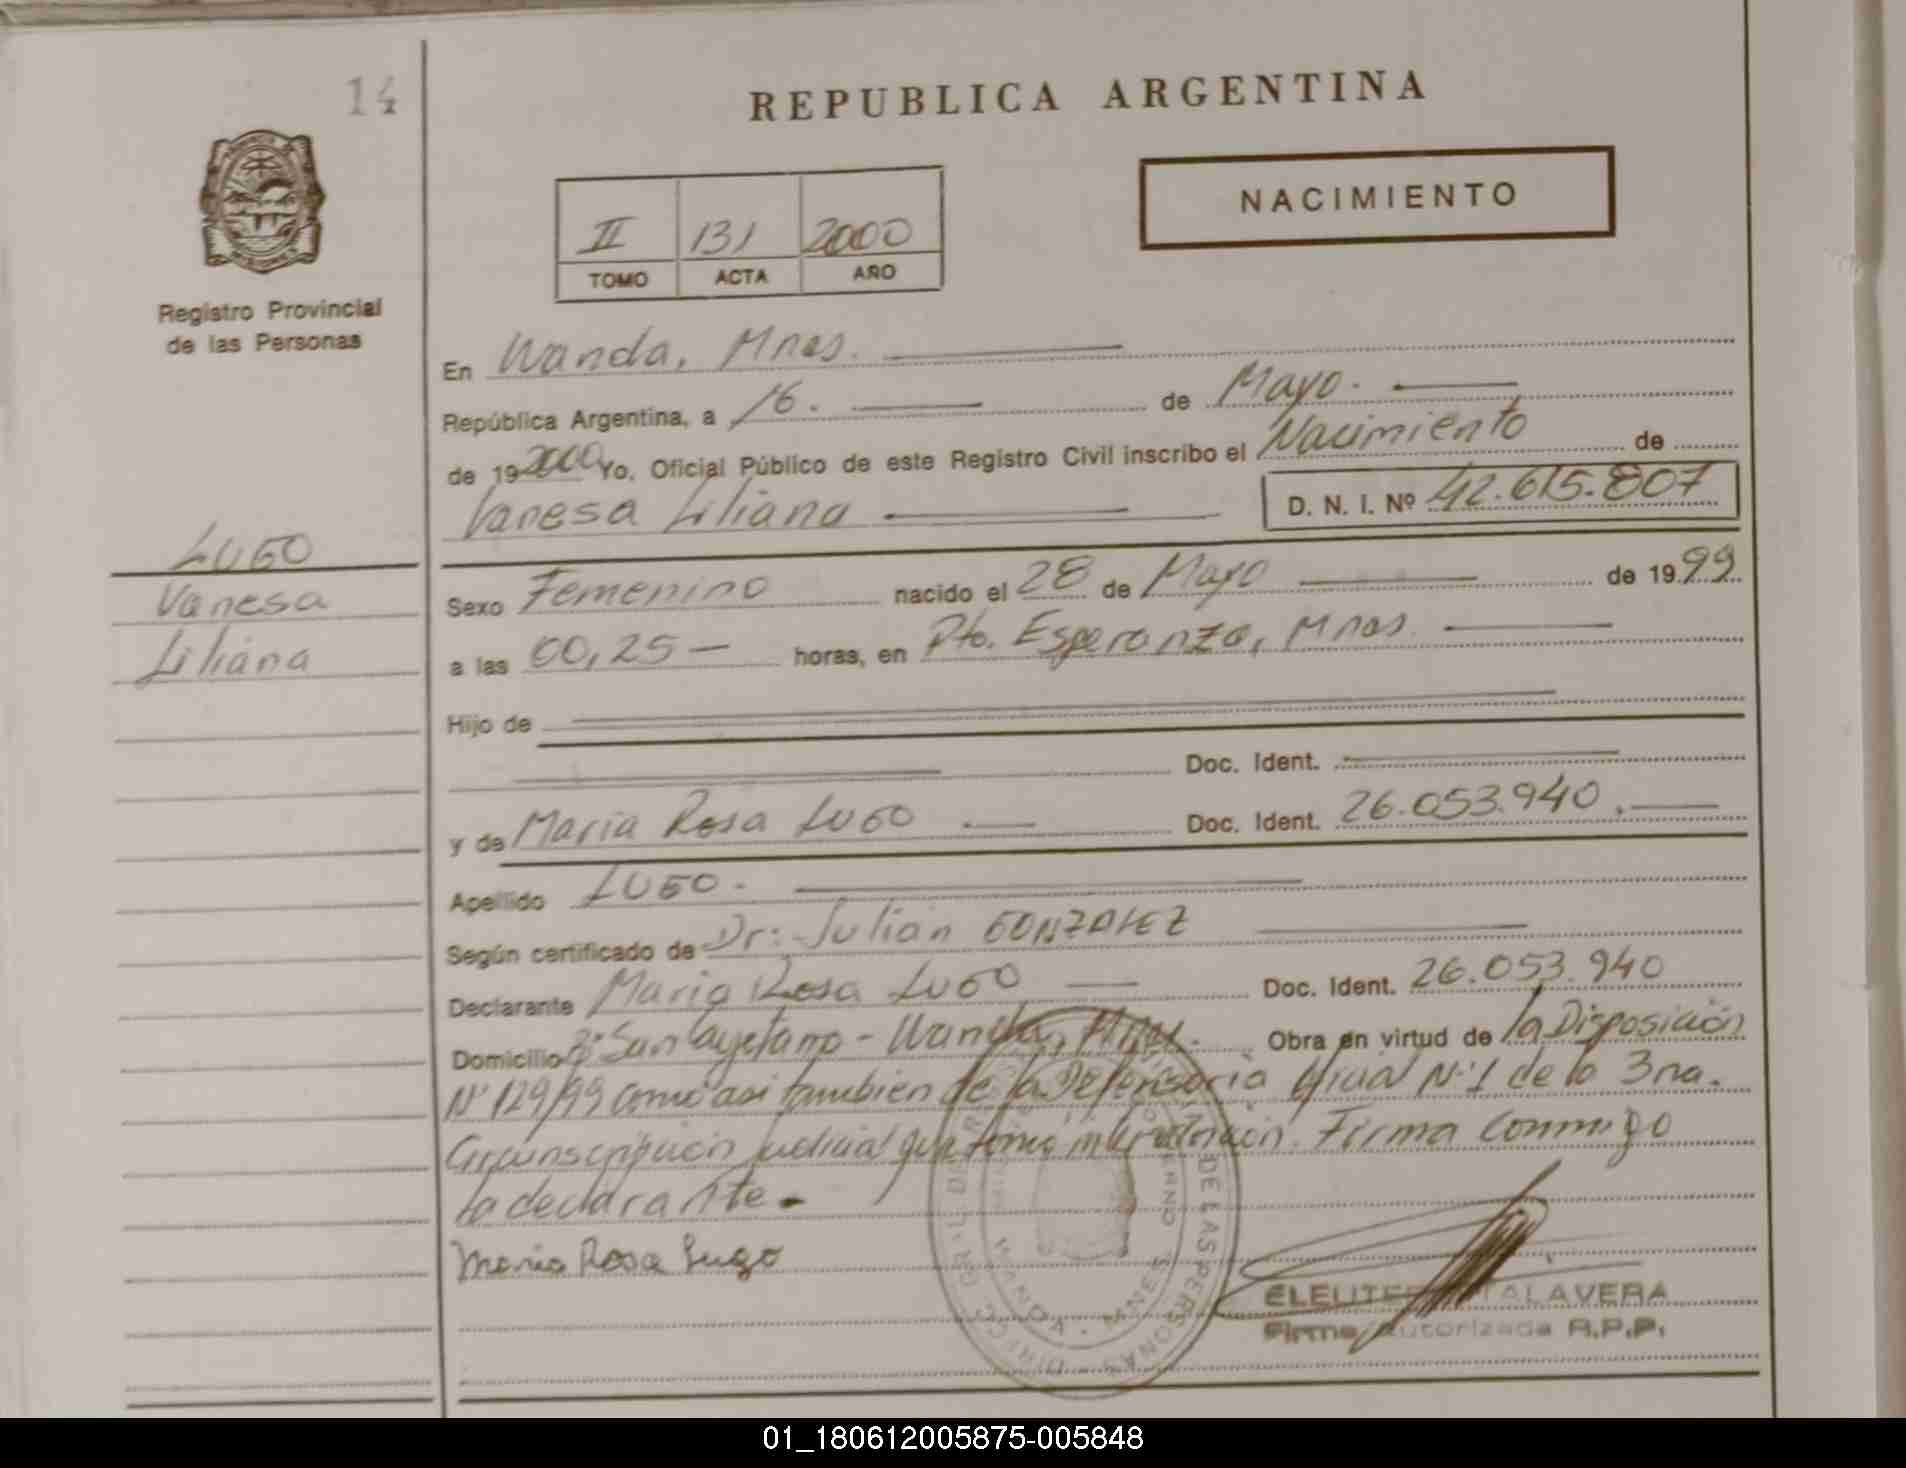 14
REPUBLICA ARGENTINA
NACIMIENTO
II 131 2000
TOMO ACTA AÑO
Registro Provincial
de las Personas
En Wanda, Mnes.
República Argentina, a 16. de Mayo.
de 19 2000 Yo, Oficial Público de este Registro Civil inscribo el Nacimiento de
Vanesa Liliana D. N. I. Nº 42.615.807
LUGO
Vanesa
Liliana
Sexo Femenino nacido el 28 de Mayo de 19 99
a las 00,25 — horas, en Pto. Esperanza, Mnes.
Hijo de
Doc. Ident.
y de Maria Rosa LUGO . Doc. Ident. 26.053.940.
Apellido LUGO.
Según certificado de Dr: Julián GONZALEZ
Declarante Maria Rosa LUGO Doc. Ident. 26.053.940
Domicilio Bº San Cayetano - Wanda, Mnes. Obra en virtud de la Disposición
Nº 129/99 como asi tambien de la Defensoria Oficial Nº 1 de la 3ra.
Circunscripción Judicial que tomo intervención. Firma Conmigo
la declarante.
Maria Rosa Lugo
TALAVERA
Firma Autorizada R.P.P.
DE LAS PERSONAS
01_180612005875-005848